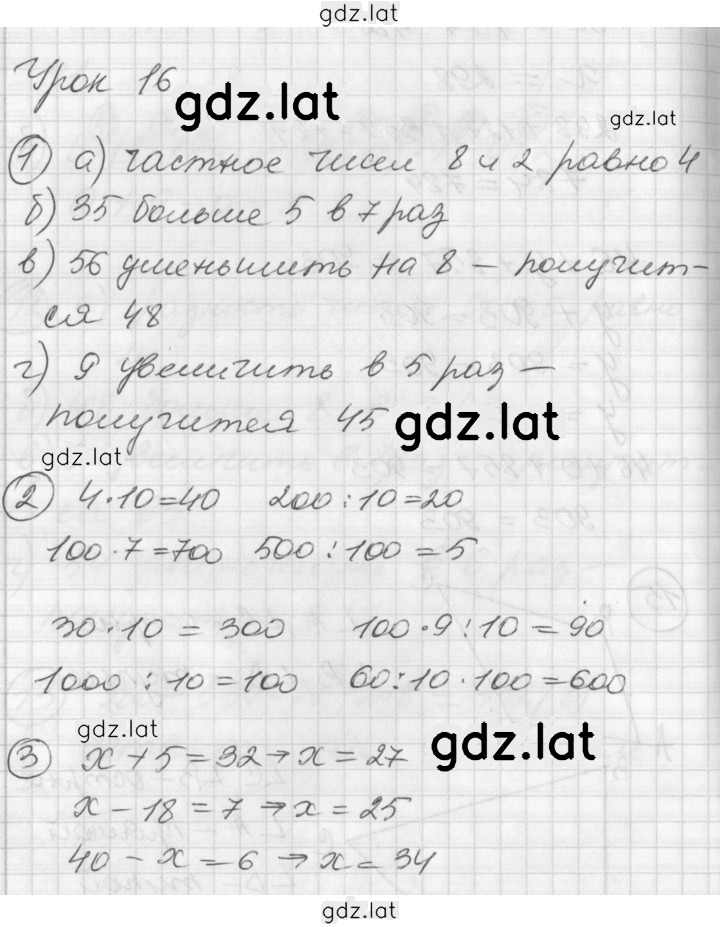 gdz.lat
Урок 16
gdz.lat
gdz.lat
1 а) частное чисел 8 и 2 равно 4
б) 35 больше 5 в 7 раз
в) 56 уменьшить на 8 – получит-
ся 48
г) 9 увеличить в 5 раз –
получится 45
gdz.lat
gdz.lat
2 4·10=40 200:10=20
100·7=700 500:100=5
30·10=300 100·9:10=90
1000:10=100 60:10·100=600
gdz.lat
gdz.lat
3 x+5=32→x=27
x-18=7→x=25
40-x=6→x=34
gdz.lat